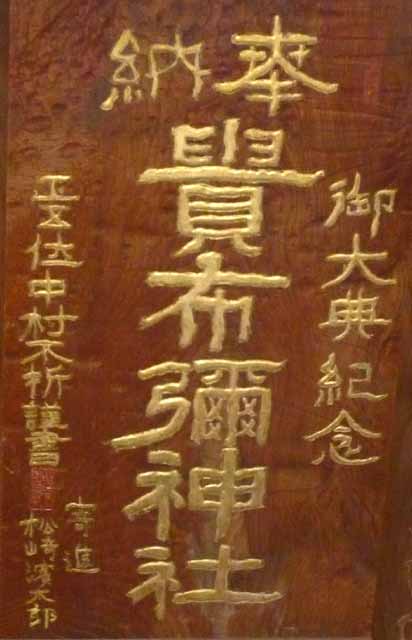 奉納
御大典紀念
貴布彌神社
正五位中村不折謹書
寄進
松崎濱太郎